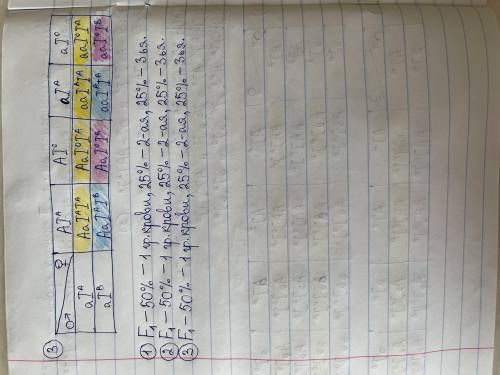 ③
♂ ♀ AIᴬ AI⁰ aIᴬ aI⁰
aIᴬ AaIᴬIᴬ AaI⁰Iᴬ aaIᴬIᴬ aaI⁰Iᴬ
aIᴮ AaIᴬIᴮ AaI⁰Iᴮ aaIᴬIᴮ aaI⁰Iᴮ
① F₁ – 50% – 1 гр.крови, 25% – 2-ая, 25% – 3ья.
② F₁ – 50% – 1 гр.крови, 25% – 2-ая, 25% – 3ья.
③ F₁ – 50% – 1 гр.крови, 25% – 2-ая, 25% – 3ья.